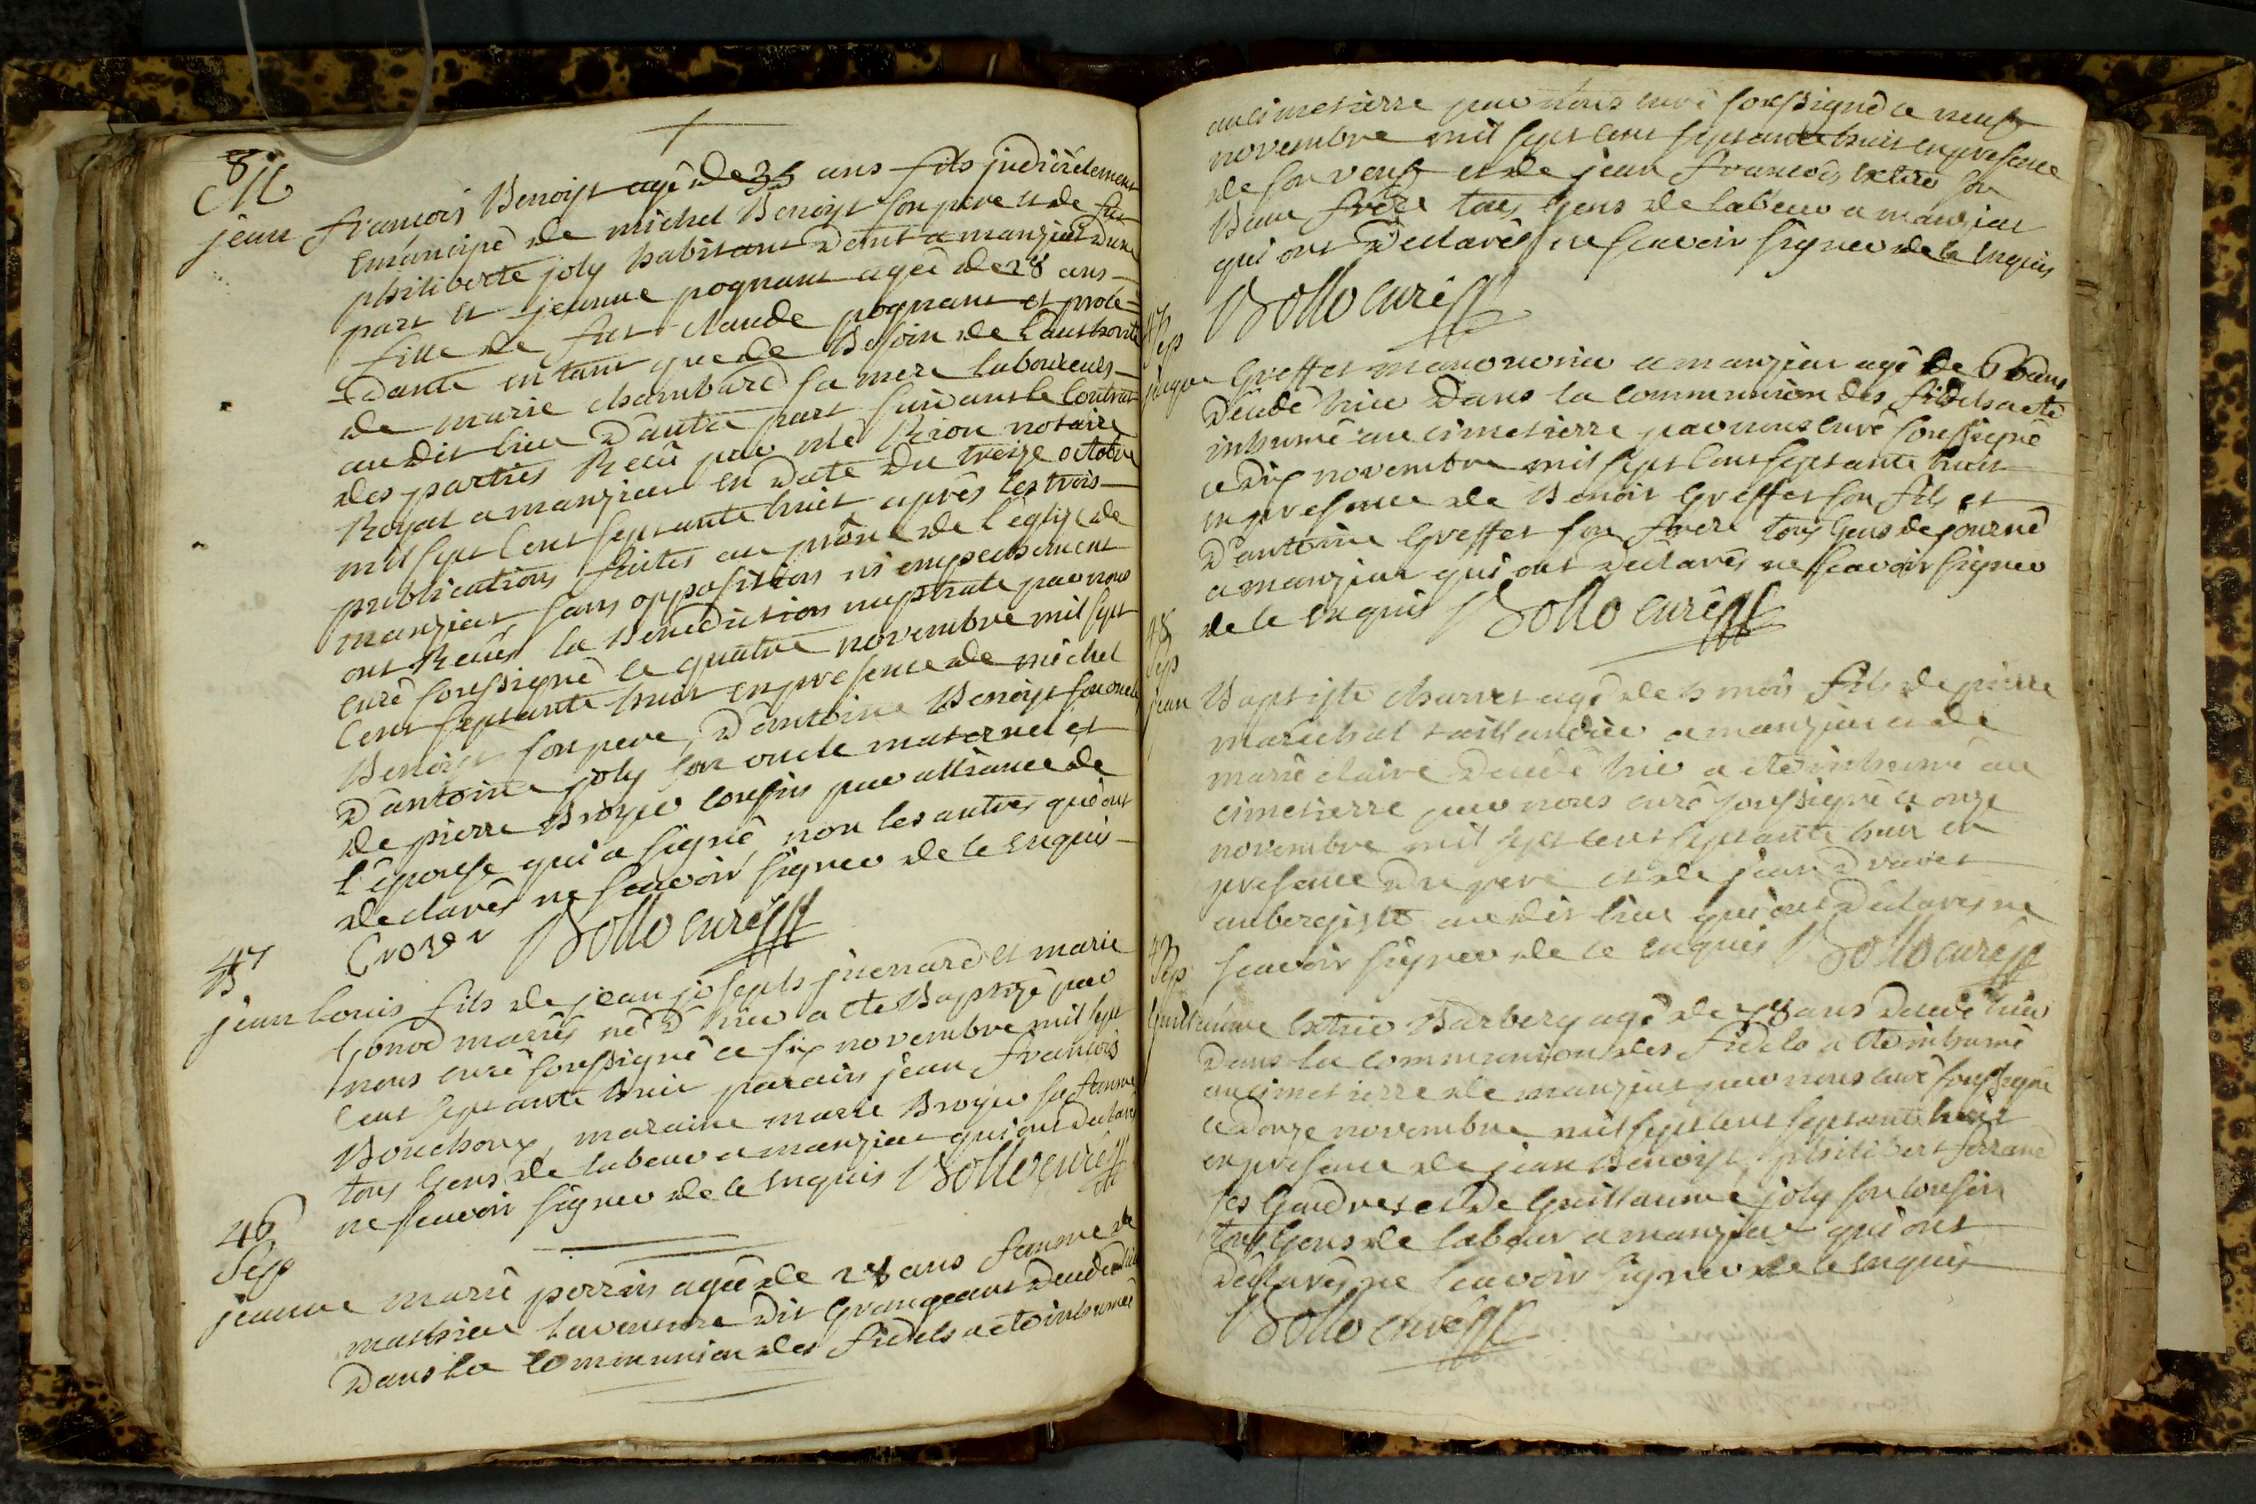 8
M
jean francois Benoist agé de 35 ans fils judiciérement
émancipé de michel Benoist son pere et de fut
philiberte joly habitant dem.t a manziat d'une
part et jeanne pognant agée de 28 ans
fille de fut claude pognant et procé-
dante en tant que de Besoin de l'authorité
de marie chambard sa mere laboureurs
audit lieu d'autre part suivant le contrat
des parties Recû par me Rion notaire
Royal a manziat en date du treize octobre
mil sept cent septante huit aprês les trois
publications faites au prône de l'église de
manziat sans opposition ni empechement
ont Recûs la Benediction nuptiale par nous
curé soussigné ce quatre novembre mil sept
cent septante huit en presence de michel
Benoist son pere, d'antoine Benoist son oncle
d'antoine joly son oncle maternel et
de pierre Broyer cousin par alliance de
l'épouse qui a signé non les autres qui ont
declarés ne scavoir signer de ce enquis
Bollo curé
47
B
jean Louis fils de jean joseph juenard et marie
Gonod mariés né d'hier a eté Baptizé par
nous curé soussigné ce six novembre mil sept
cent septante huit parain jean francois
Bouchoux, maraine marie Broyer sa femme
tous gens de labeur a manziat qui ont declarés
ne scavoir signer de ce enquis Bollo curé
46
Sep
jeanne marie perrin agée de 28 ans femme de
mathieu Laventure dit Grangeant decedée hier
dans la communion des fidels a eté inhumée
au cimetierre par nous curé soussigné ce neuf
novembre mil sept cent septante huit en presence
de son veuf et de jean francois son
Beau frêre tous gens de labeur a manziat
qui ont declarés ne scavoir signer de ce enquis
Bollo curé
47
Sep
jaque Greffet manouvrier a manziat agé de ans
decedé hier dans la communion des fidels a eté
inhumé au cimetierre par nous curé soussigné
ce dix novembre mil sept cent septante huit
en presence de Benoit Greffet son fils et
d'antoine Greffet son frere tous gens de journé
a manziat qui ont declarés ne scavoir signer
de ce enquis Bollo curé
48
Sep
jean Baptiste charvet agé de mois fils de pierre
maréchal taillandier a manziat et de
marie claire decedé hier a eté inhumé au
cimetierre par nous curé soussigné ce onze
novembre mil sept cent septante huit en
presence du pere et de jean
aubergiste audit lieu qui ont declarés ne
scavoir signer de ce enquis Bollo curé
Sep
Guillaume Barbery agé de 78 ans decedé hier
dans la communion des fidels a eté inhumé
au cimetierre de manziat par nous curé soussigné
ce douze novembre mil sept cent septante huit
en presence de jean Benoist, philibert ferrand
ses Gendres et de Guillaume joly son cousin
tous gens de labeur a manziat qui ont
declarés ne scavoir signer de ce enquis
Bollo curé